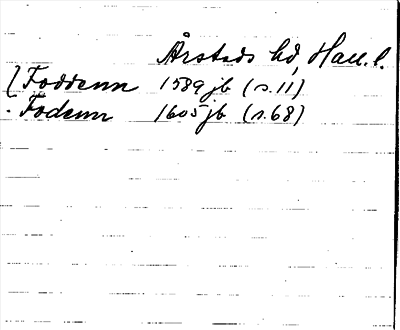 Årstads hd, Hall. l.
(Foddenn 1589 jb (s. 11)
. Fodenn 1605 jb (s. 68)